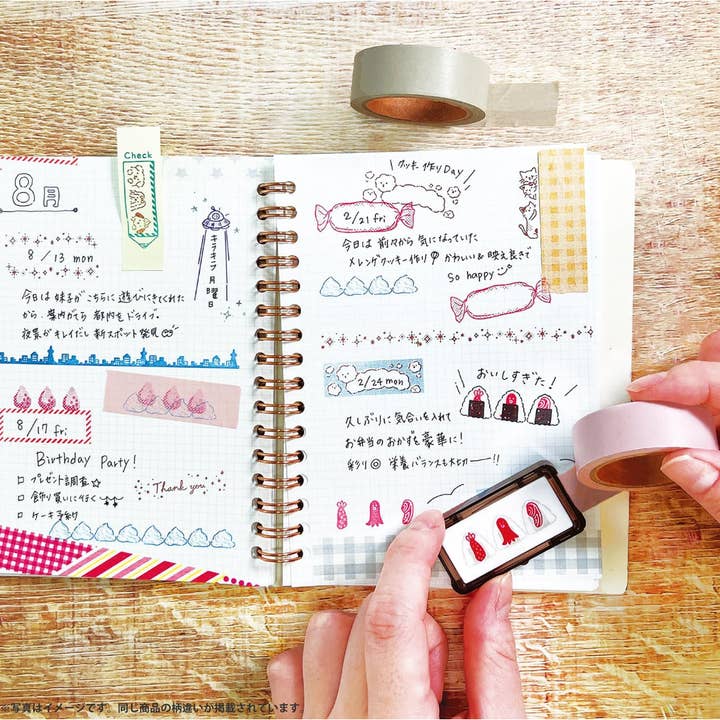 8月
Check
8/13 mon
キラキラ月曜日
今日は妹子がこちらに遊びにきてくれた
から、案内がてら都内をドライブ。
夜景がキレイだし新スポット発見
8/17 fri
Birthday Party!
□ プレゼント調査☆
□ 飾り買いに行く
□ ケーキ予約
Thank you
クッキー作りDAY
2/21 fri
今日は前々から気になっていた
メレンゲクッキー作り かわいい&映え良きで
so happy
2/24 mon
おいしすぎた!
久しぶりに気合いを入れて
お弁当のおかずを豪華に!
彩り◎ 栄養バランスも大切——!!
※写真はイメージです。同じ商品の柄違いが掲載されています